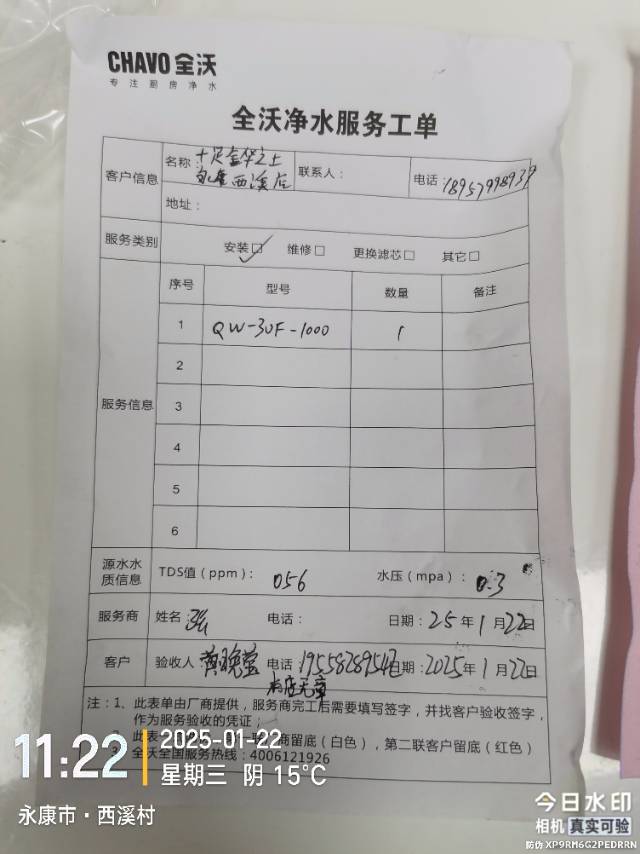 CHAVO 全沃
专注厨房净水
全沃净水服务工单
客户信息 名称：十足金华之上 联系人： 电话：18957998937
永康西溪店
地址：
服务类别 安装☑ 维修□ 更换滤芯□ 其它□
服务信息 序号 型号 数量 备注
1 QW-3UF-1000 1
2
3
4
5
6
源水水质信息 TDS值（ppm）：056 水压（mpa）：0.3
服务商 姓名： 电话： 日期：25年1月22日
客户 验收人 黄晓莹 电话 日期：2025年1月22日
本店无章
注：1、此表单由厂商提供，服务商完工后需要填写签字，并找客户验收签字，
作为服务验收的凭证；
2、此表 商留底（白色），第二联客户留底（红色）
全沃全国服务热线：4006121926
11:22 2025-01-22
星期三 阴 15℃
永康市·西溪村
今日水印
相机 真实可验
防伪 XP9RM6G2PEDRRN